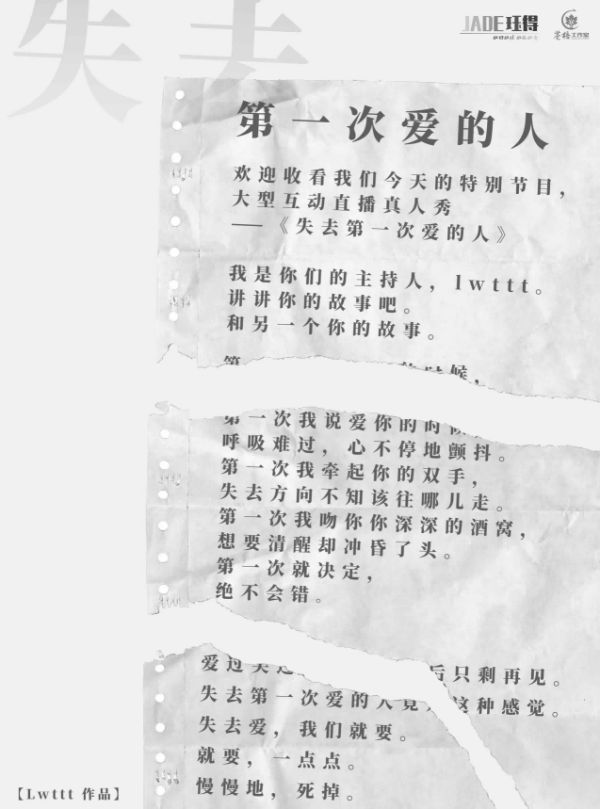 失去
JADE珏得
工作室
第一次爱的人
欢迎收看我们今天的特别节目，
大型互动直播真人秀
——《失去第一次爱的人》
我是你们的主持人，lwttt。
讲讲你的故事吧。
和另一个你的故事。
第 时候，
第一次我说爱你的时候
呼吸难过，心不停地颤抖。
第一次我牵起你的双手，
失去方向不知该往哪儿走。
第一次我吻你你深深的酒窝，
想要清醒却冲昏了头。
第一次就决定，
绝不会错。
爱过 后只剩再见。
失去第一次爱的人竟 这种感觉。
失去爱，我们就要。
就要，一点点。
慢慢地，死掉。
【Lwttt 作品】